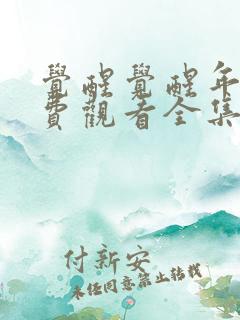 覺醒覺醒年
費觀看全集
付新安
未經同意禁止轉載